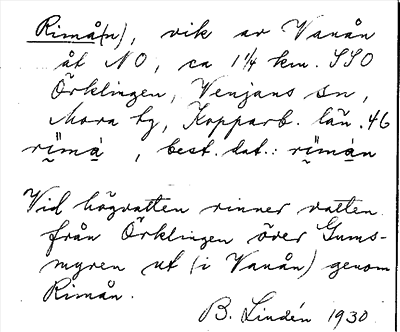 Rimå(n), vik av Vanån
åt NO, ca 1¼ km. SSO
Örklingen, Venjans sn,
Mora tg, Kopparb. län. 46
rïmà̱, best. dat.: rïmàn
Vid högvatten rinner vatten
från Örklingen över Gums-
myren ut (i Vanån) genom
Rimån.
B. Lindén 1930.